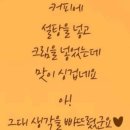 커피에
설탕을 넣고
크림을 넣었는데
맛이 싱겁네요
아!
그대 생각을 빠뜨렸군요♥